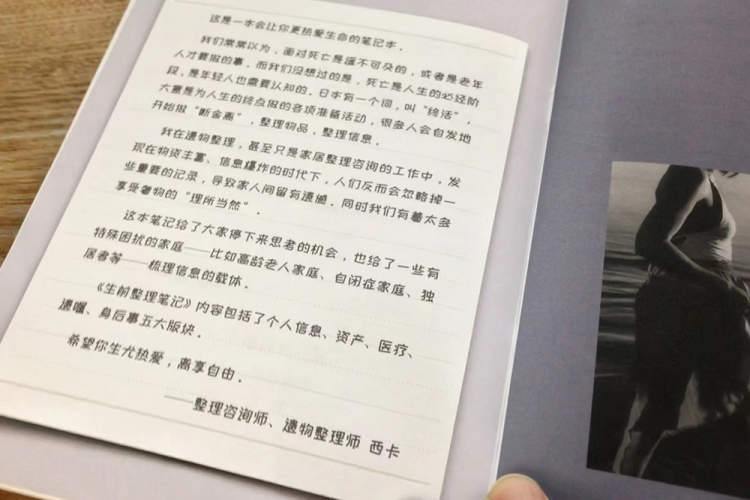 这是一本会让你更热爱生命的笔记本.
我们常常以为，面对死亡是遥不可及的，或者是老年
人才要做的事，而我们没想过的是，死亡是人生的必经阶
段、是年轻人也需要认知的，日本有一个词，叫“终活”，
大意是为人生的终点做的各项准备活动，很多人会自发地
开始做“断舍离”，整理物品，整理信息，
我在遗物整理，甚至只是家居整理咨询的工作中，发
现在物资丰富、信息爆炸的时代下，人们反而会忽略掉一
些重要的记录，导致家人间留有遗憾，同时我们有着太多
享受着物的“理所当然”.
这本笔记给了大家停下来思考的机会，也给了一些有
特殊困扰的家庭——比如高龄老人家庭、自闭症家庭、独
居者等——梳理信息的载体.
《生前整理笔记》内容包括了个人信息、资产、医疗、
遗嘱、身后事五大版块.
希望你生尤热爱，离享自由.
——整理咨询师、遗物整理师 西卡